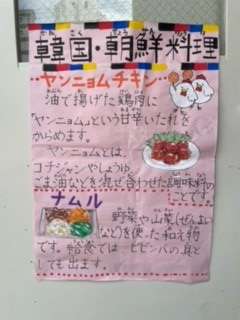 韓国・朝鮮料理
ヤンニョムチキン
油で揚げた鶏肉に
「ヤンニョム」という甘辛いたれを
からめます。
ヤンニョムとは、
コチジャンやしょうゆ、
ごま油などを混ぜ合わせた調味料の
ことです。
ナムル
野菜や山菜(ぜんまい
など)を使った和え物
です。給食では、ビビンバの具と
しても出ます。